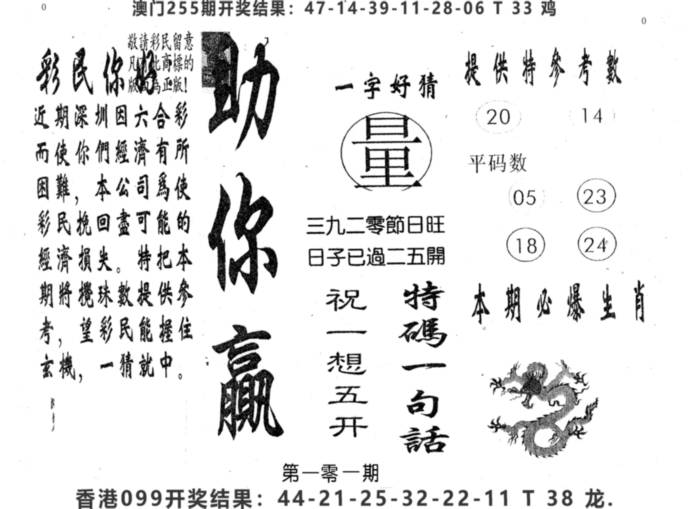 澳门255期开奖结果：47-14-39-11-28-06 T 33 鸡
0
0
敬請彩民留意
彩民你好
近期深圳因六合彩
而使你們經濟有所
困難，本公司爲使
彩民挽回盡可能的
經濟損失。特把本
期將攪珠數提供參
考，望彩民能握住
玄機，一猜就中。
助你贏
一字好猜
量
三九二零節日旺
日子已過二五開
特碼一句話
祝一想五开
提供特參考數
20
14
平码数
05
23
18
24
本期必爆生肖
第一零一期
香港099开奖结果：44-21-25-32-22-11 T 38 龙.